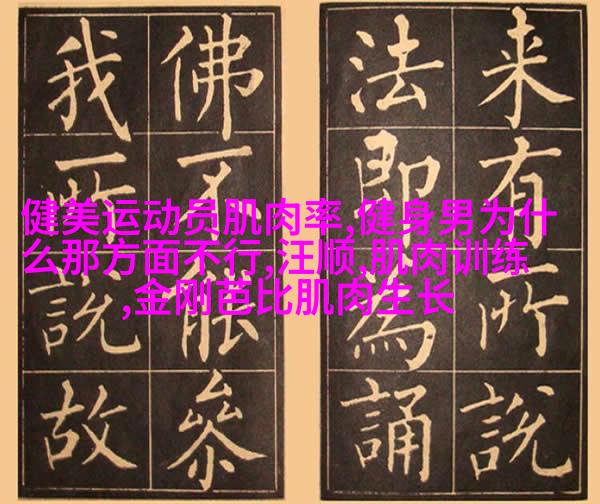 来有所說
法即為誦
佛不能參
我所說故
健美运动员肌肉率,健身男为什
么那方面不行,汪顺,肌肉训练
,金刚芭比肌肉生长